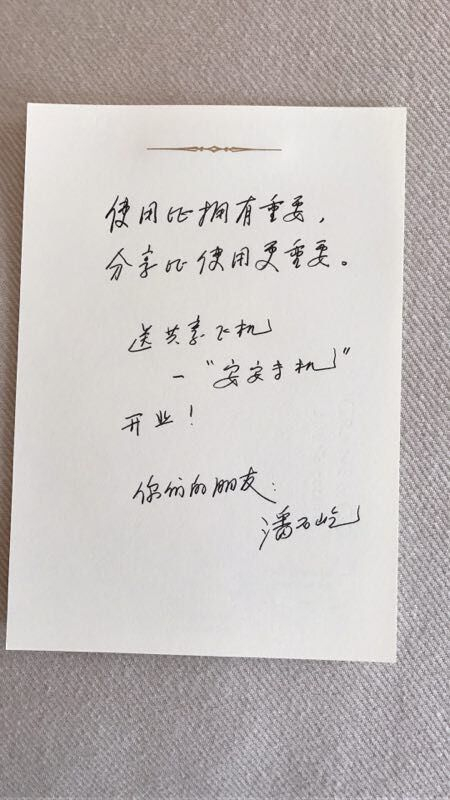 使用比拥有重要，
分享比使用更重要。
送共享飞机
—“安安手机”
开业！
你们的朋友：
潘石屹